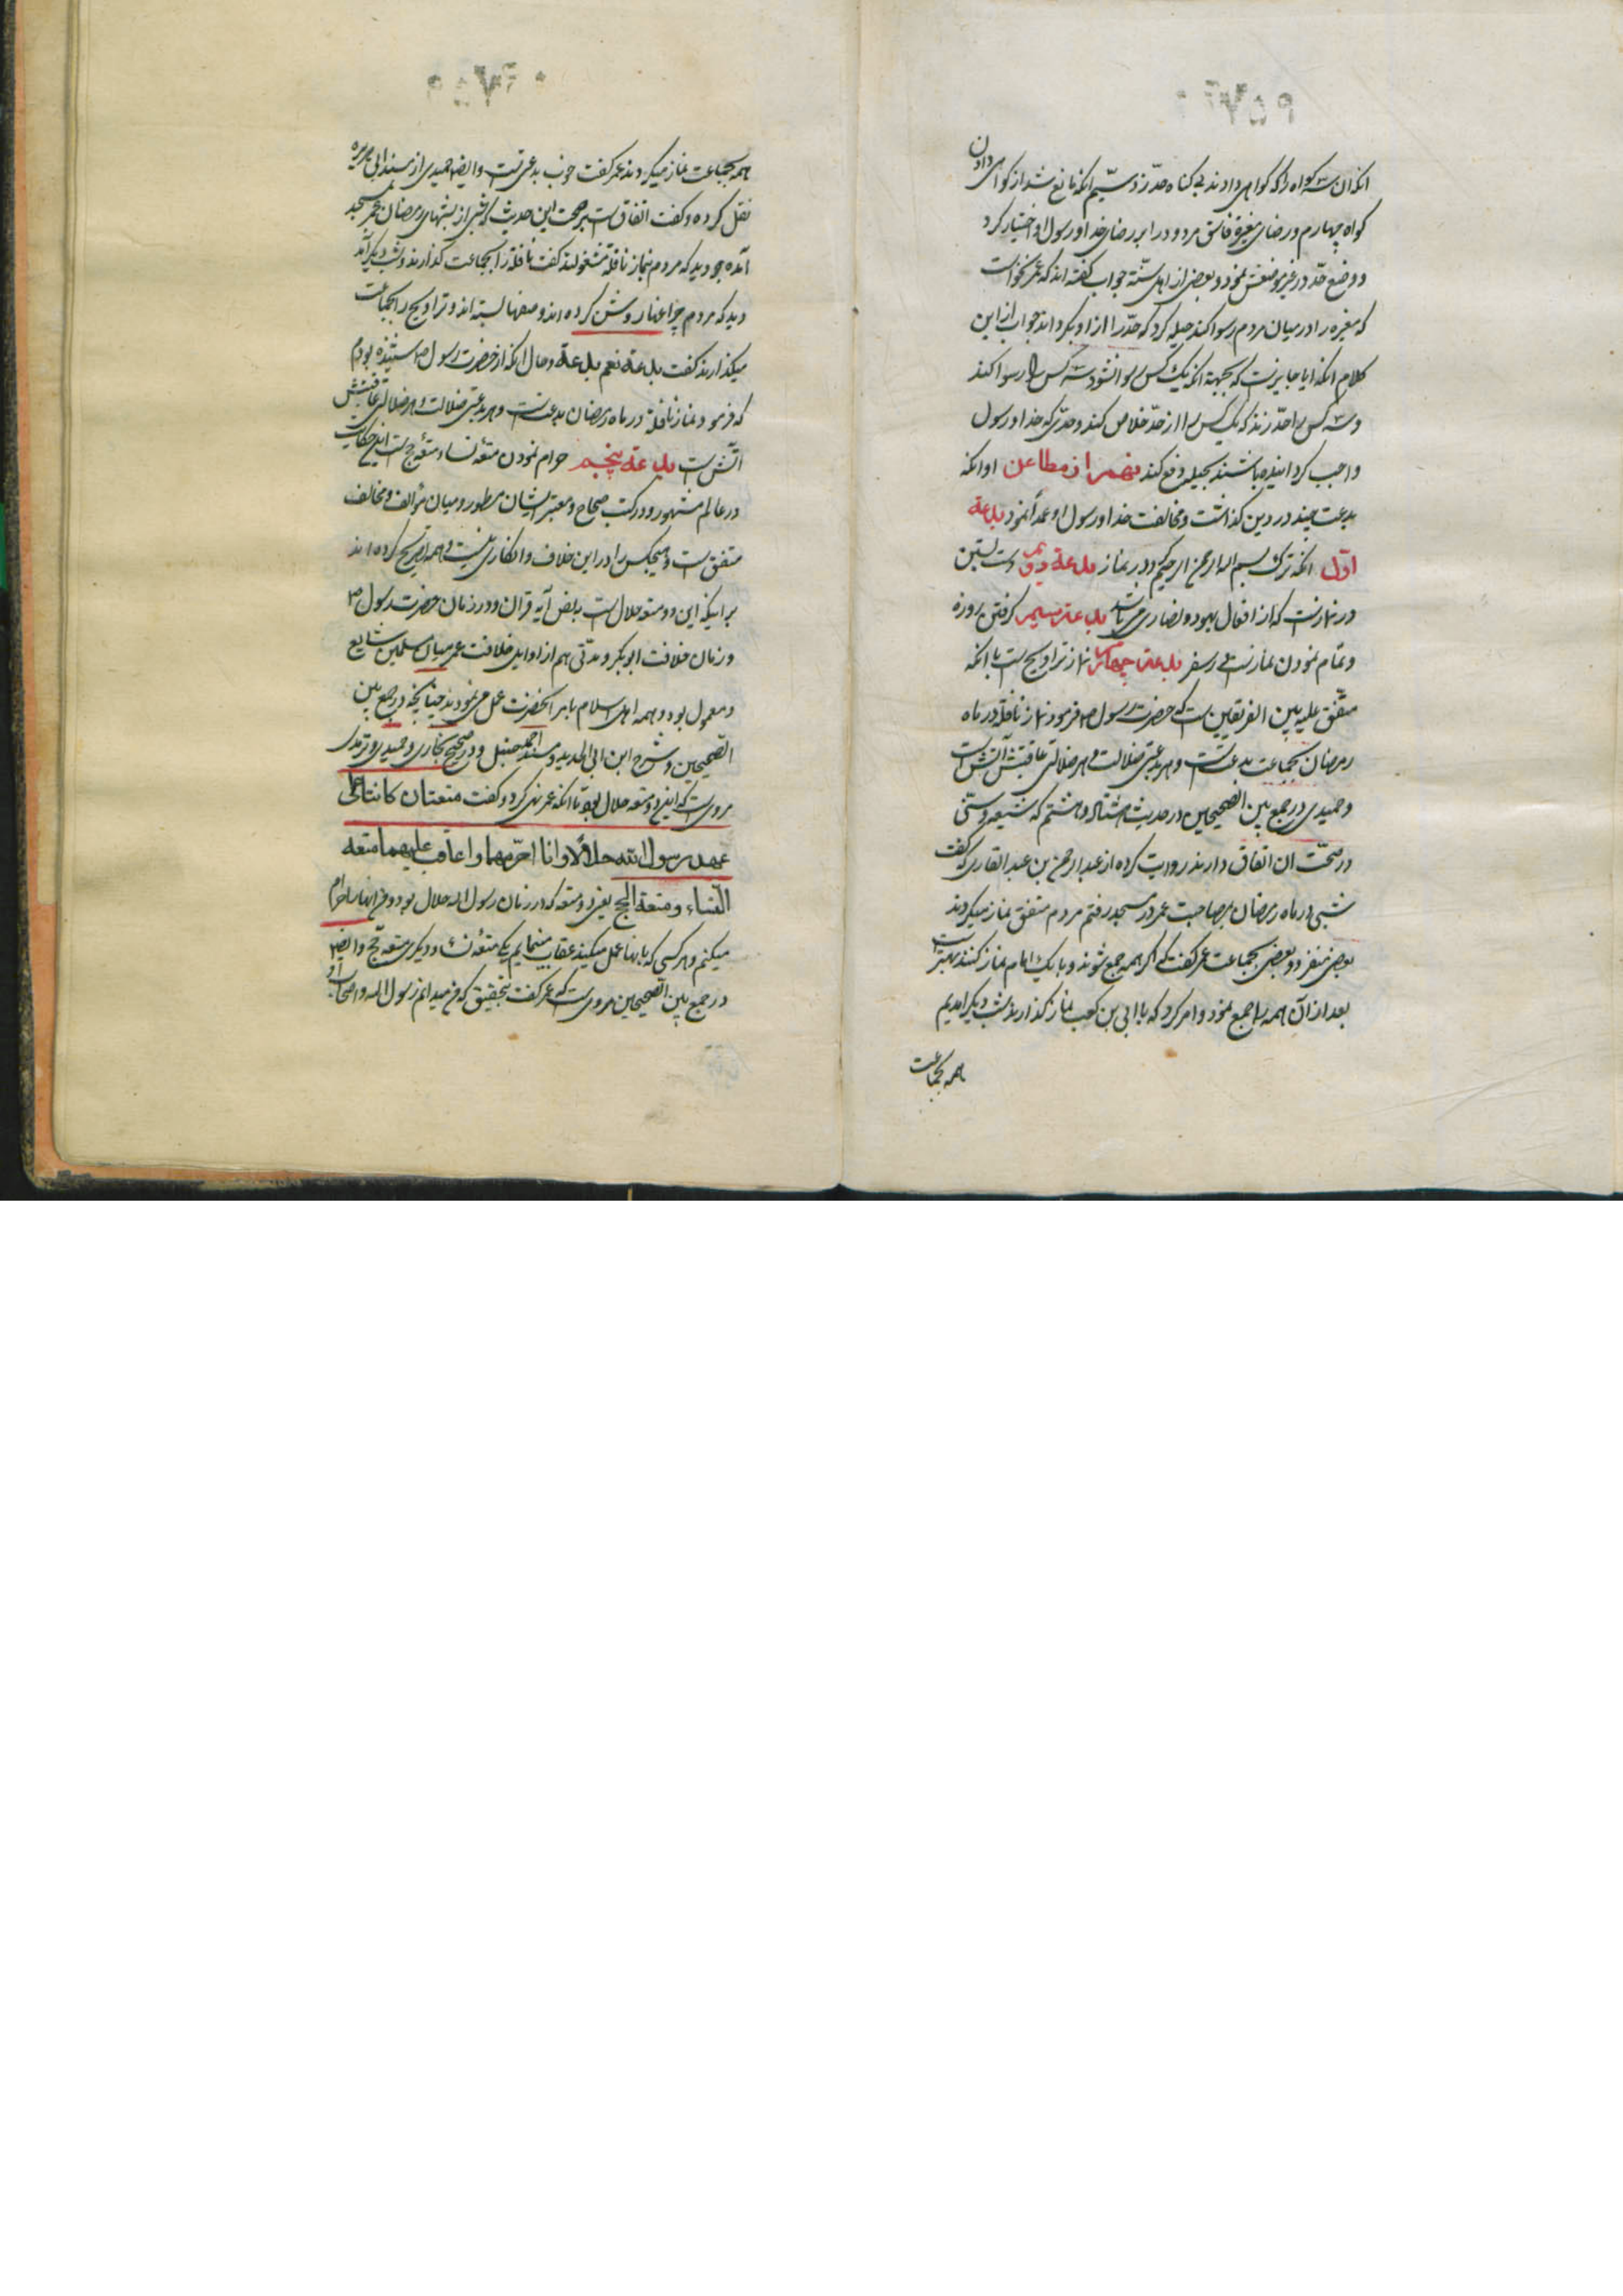 انکه ان سه کواه را که کواهی دادند بی کناه حدّ زد سیّم انکه مانع شد از کواهی دادن
کواه چهارم و رضای مغیرهٔ فاسق مردود را بر رضای خدا و رسول او اختیار کرد
و وضع حدّ در غیر موضعش نمود و بعضی از اهل سنّة جواب کفته اند که عمر نخواست
که مغیره را در میان مردم رسوا کند حیله کرد که حدّ را از او بکرداند جواب از این
کلام انکه ایا جایز است که بجهة انکه یک کس رسوا نشود سه کس را رسوا کند
و سه کس را حدّ زند که یک کس را از حدّ خلاص کند و حدّی که خدا و رسول
واجب کردانیده باشند بحیله دفع کند نهم از مطاعن او انکه
بدعت چند در دین کذاشت و مخالفت خدا و رسول او عمداً نمود بدعة
اوّل انکه ترک بسم الله الرحمن الرحیم در نماز بدعة دویم دست بستن
در نماز است که از افعال یهود و نصاری می باشد بدعة سیم کرفتن روزه
و تمام نمودن نماز است در سفر بدعة چهارم نماز تراویح است با انکه
متّفق علیه بین الفریقین است که حضرت رسول ص فرمود نماز نافله در ماه
رمضان بجماعت بدعت است و هر بدعتی ضلالت و هر ضلالتی عاقبتش آتش است
و حمیدی در جمع بین الصحیحین در حدیث هشتاد و هشتم که شیعه و سنّی
در صحّت ان اتفاق دارند روایت کرده از عبد الرحمن بن عبد القاری که کفت
شبی در ماه رمضان بمصاحبت عمر در مسجد رفتم مردم متفق نماز میکردند
بعضی منفرد و بعضی بجماعت عمر کفت که اکر همه جمع شوند و با یک امام نماز کنند بهتر است
بعد از آن همه را جمع نمود و امر کرد که با ابی بن کعب نماز کذارند شب دیکر امدیم
همه بجماعت
همه بجماعت نماز میکردند عمر کفت خوب بدعتی است و ایضا حمیدی از مسند ابی هریره
نقل کرده و کفت اتفاق است بر صحت این حدیث که شبی از شبهای رمضان عمر بمسجد
آمده دید که مردم بنماز نافله مشغولند کفت نافله را بجماعت کذارند و شب دیکر آمد
دید که مردم چراغها روشن کرده اند و صفها بسته اند و تراویح را بجماعت
میکذارند کفت بدعة نعم بدعة و حال انکه از حضرت رسول ص شنیده بودم
که فرمود نماز نافله در ماه رمضان بدعت است و هر بدعتی ضلالت و هر ضلالتی عاقبتش
آتش است بدعة پنجم حرام نمودن متعهٔ نساء و متعهٔ حج است این حکایت
در عالم مشهور و در کتب صحاح و معتبر ایشان مسطور و میان مؤالف و مخالف
متفق است و هیچکس را در این خلاف و انکاری نیست و همه تصریح کرده اند
بر اینکه این دو متعه حلال است بنص آیه قران و در زمان حضرت رسول ص
و زمان خلافت ابو بکر و مدّتی هم از اوایل خلافت عمر میان مسلمین شایع
و معمول بود و همه اهل اسلام بامر انحضرت عمل می نمودند چنانچه در جمع بین
الصحیحین و شرح ابن ابی الحدید و مسند احمد حنبل و در صحیح بخاری و حمیدی و ترمذی
مرویست که این دو متعه حلال بود تا انکه عمر نهی کرد و کفت متعتان کانتا علی
عهد رسول الله حلالا و انا احرّمهما و اعاقب علیهما متعه
النساء و متعة الحج یعنی دو متعه که در زمان رسول الله حلال بود و من انها را حرام
میکنم و هر کسی که بانها عمل میکند عقاب مینمایم یکی متعهٔ نساء و دیکری متعه حج و ایضا
در جمع بین الصحیحین مرویست که عمر کفت بتحقیق که من میدانم رسول الله و اصحاب او